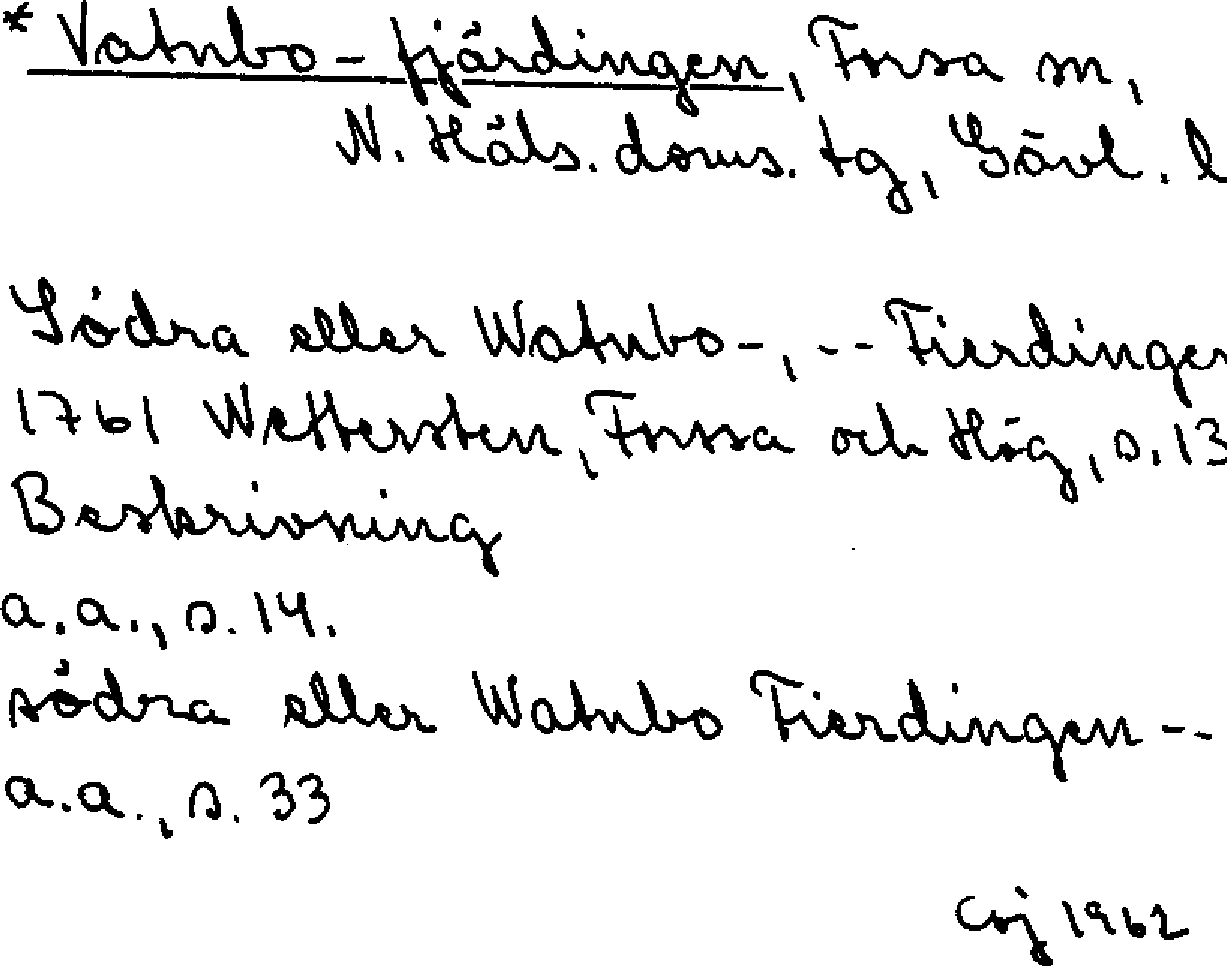 * Vatnbo-fjärdingen, Forsa sn,
N. Häls. doms. tg, Gävl. l
Södra eller Watnbo-, -- Fierdingen
1761 Wettersten, Forssa och Hög, s. 13
Beskrivning
a.a., s. 14.
södra eller Watnbo Fierdingen --
a.a., s. 33
COJ 1962